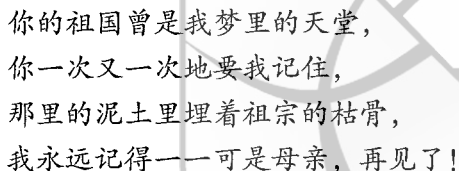 你的祖国曾是我梦里的天堂，
你一次又一次地要我记住，
那里的泥土里埋着祖宗的枯骨，
我永远记得一一可是母亲，再见了！